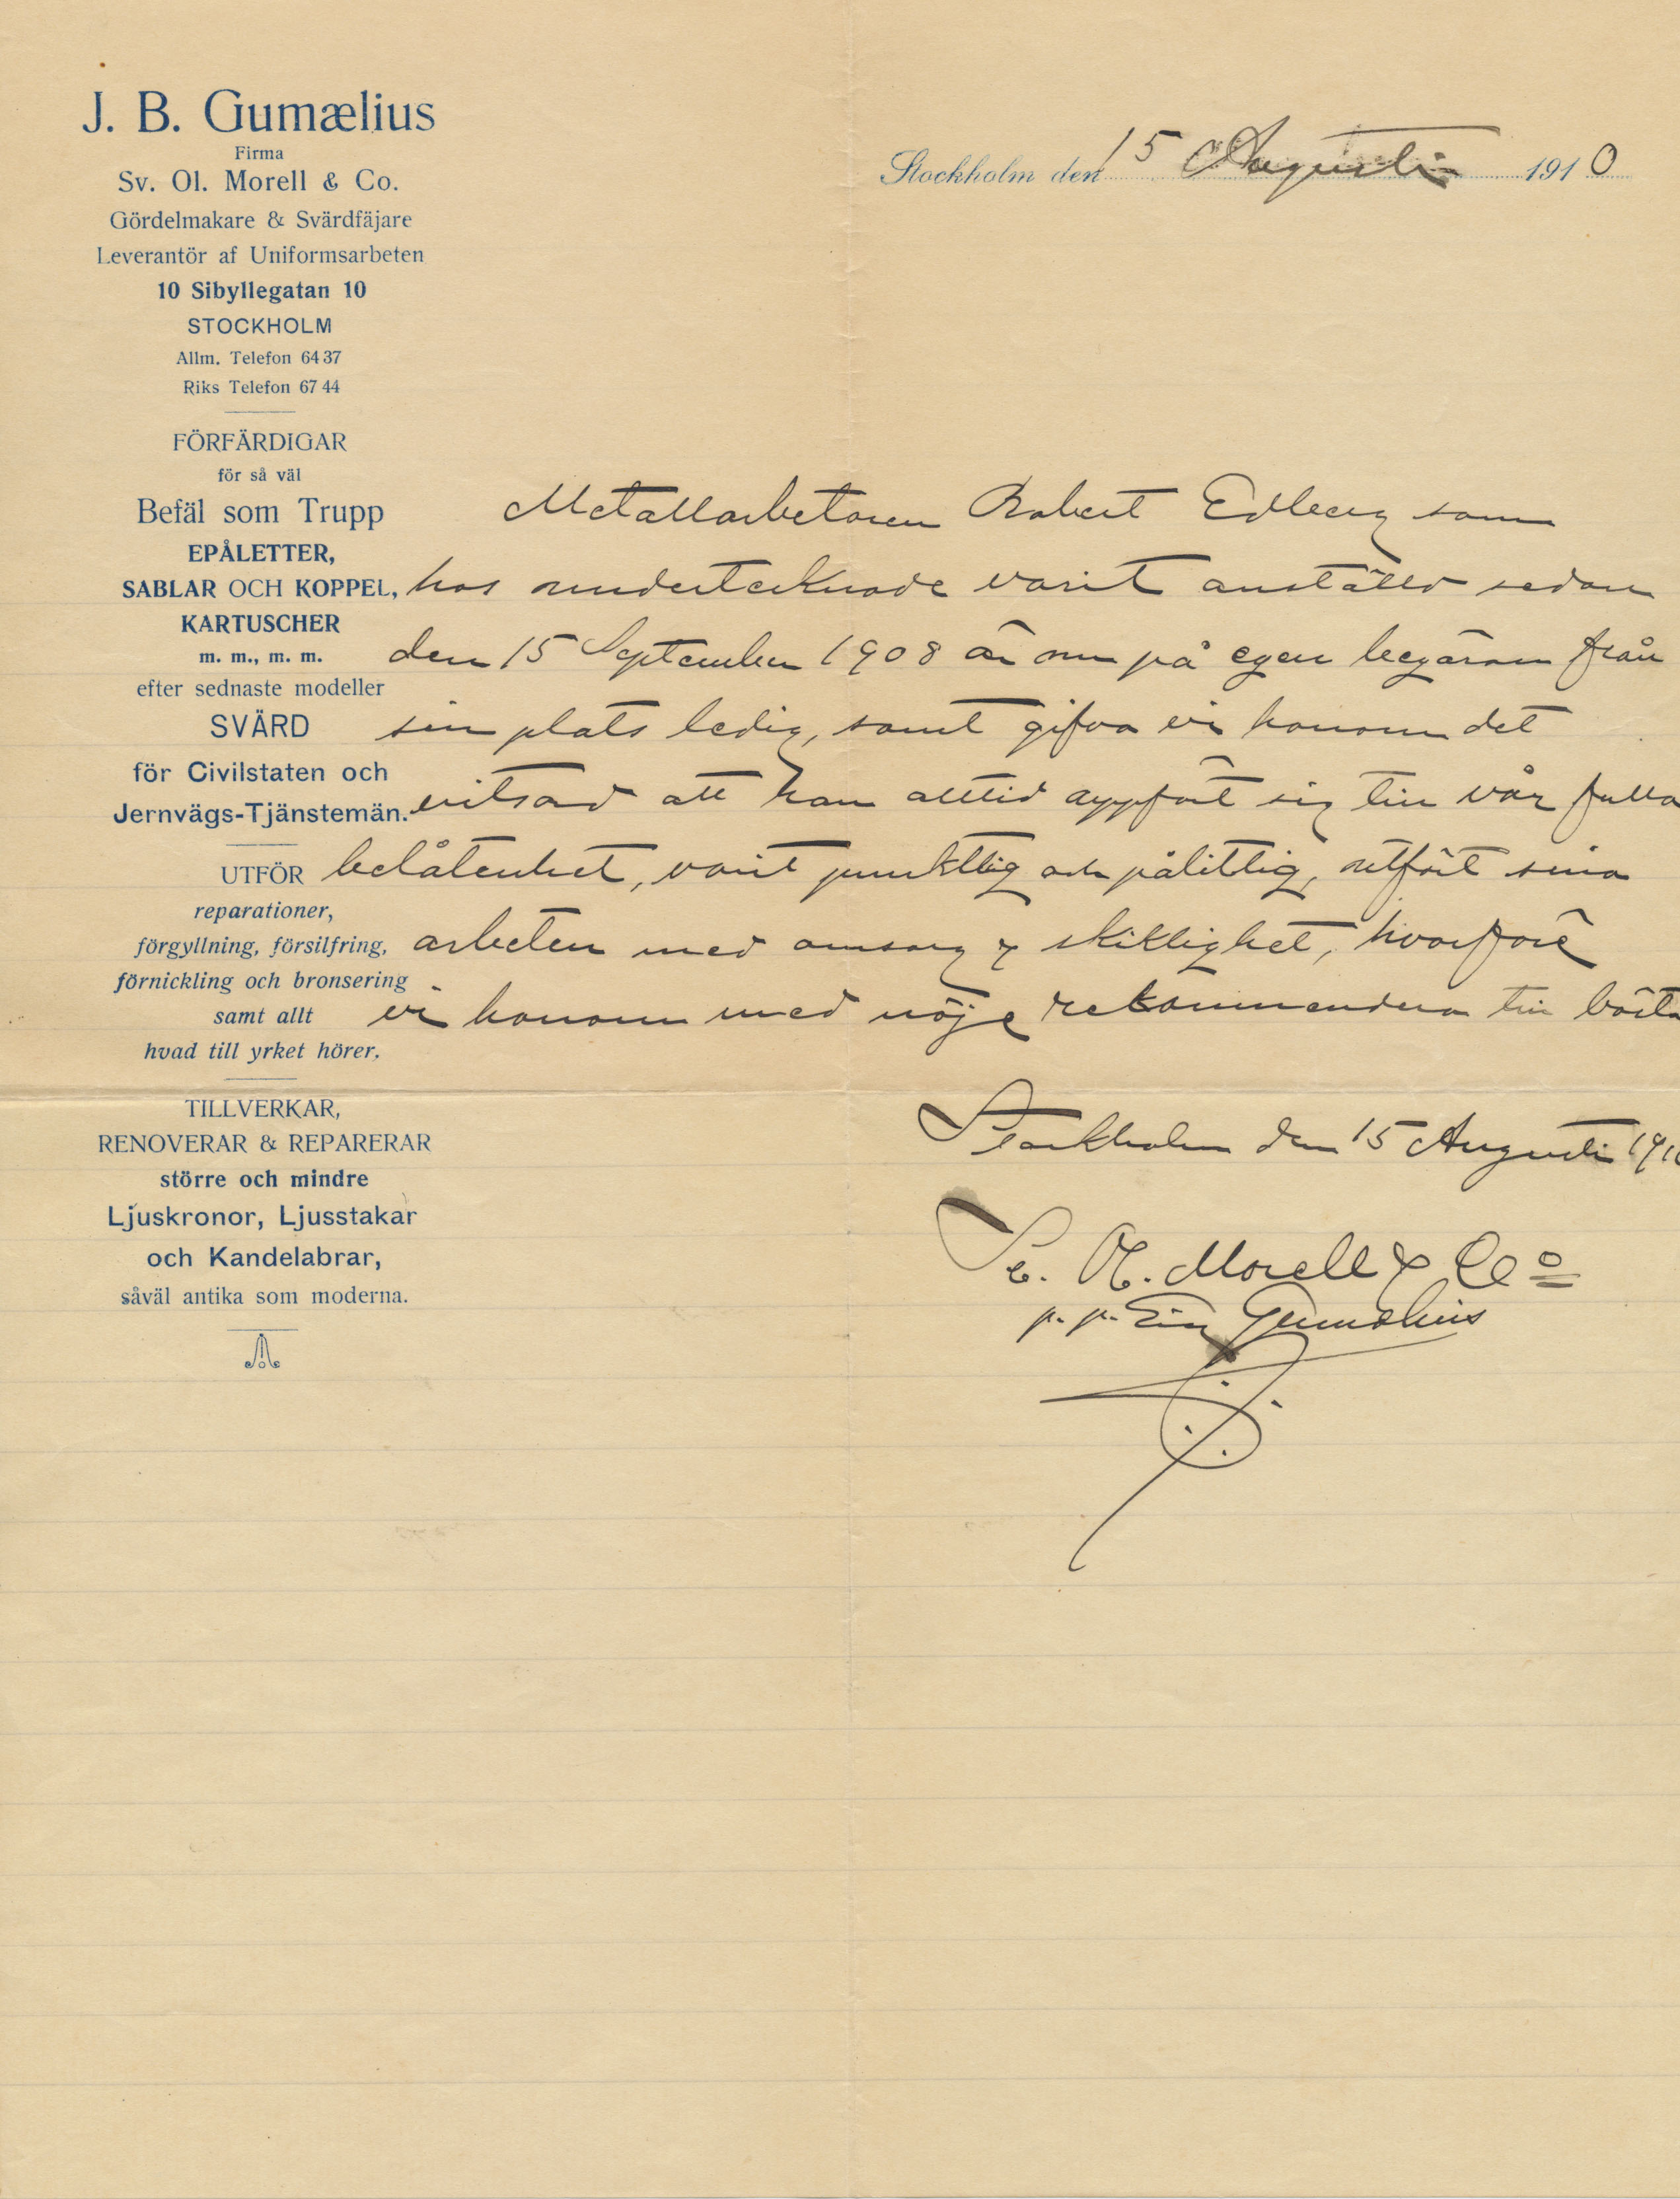 J. B. Gumælius
Firma
Sv. Ol. Morell & Co.
Gördelmakare & Svärdfäjare
Leverantör af Uniformsarbeten
10 Sibyllegatan 10
STOCKHOLM
Allm. Telefon 64 37
Riks Telefon 67 44
FÖRFÄRDIGAR
för så väl
Befäl som Trupp
EPÅLETTER,
SABLAR OCH KOPPEL,
KARTUSCHER
m. m., m. m.
efter sednaste modeller
SVÄRD
för Civilstaten och
Jernvägs-Tjänstemän.
UTFÖR
reparationer,
förgyllning, försilfring,
förnickling och bronsering
samt allt
hvad till yrket hörer.
TILLVERKAR,
RENOVERAR & REPARERAR
större och mindre
Ljuskronor, Ljusstakar
och Kandelabrar,
såväl antika som moderna.
Stockholm den 15 Augusti 1910
Metallarbetaren Robert Edberg som
hos undertecknade varit anställd sedan
den 15 September 1908 är nu på egen begäran från
sin plats ledig, samt gifva vi honom det
vitsord att han alltid uppfört sig till vår fulla
belåtenhet, varit punktlig och pålitlig, utfört sina
arbeten med omsorg & skicklighet, hvarföre
vi honom med nöje rekommendera till bästa
Stockholm den 15 Augusti 1910
Sv. Ol. Morell & Co
p. p. Gumælius